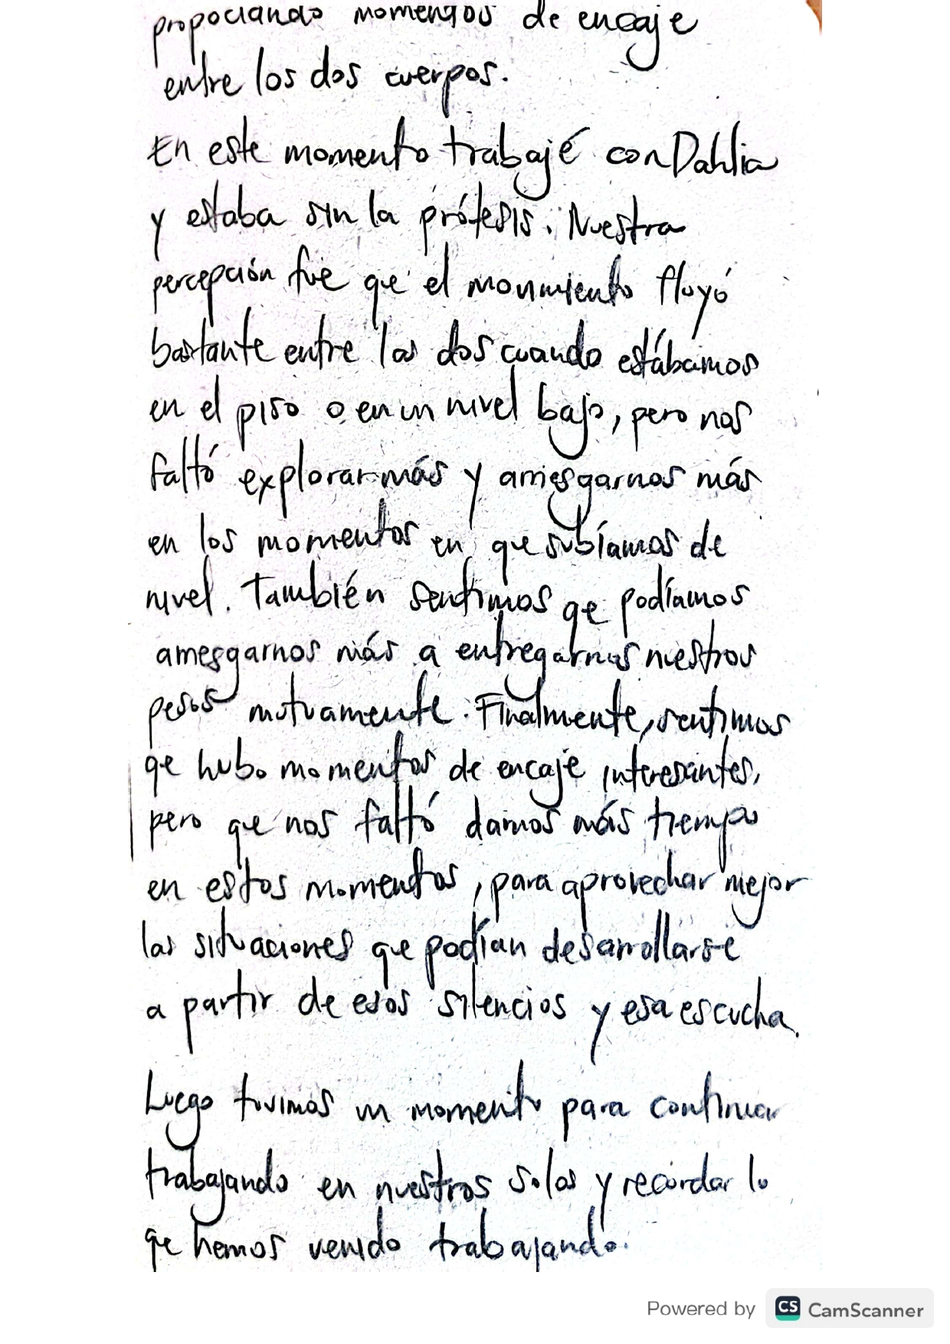 propociando momentos de encaje
entre los dos cuerpos.
En este momento trabajé con Dahlia
y estaba sin la prótesis. Nuestra
percepción fue que el movimiento fluyó
bastante entre las dos cuando estábamos
en el piso o en un nivel bajo, pero nos
faltó explorar más y arriesgarnos más
en los momentos en que subíamos de
nivel. También sentimos qe podíamos
arriesgarnos más a entregarnos nuestros
pesos mutuamente. Finalmente, sentimos
qe hubo momentos de encaje interesantes,
pero que nos faltó darnos más tiempo
en estos momentos, para aprovechar mejor
las situaciones que podían desarrollarse
a partir de esos silencios y esa escucha.
Luego tuvimos un momento para continuar
trabajando en nuestros solos y recordar lo
qe hemos venido trabajando.
Powered by CS CamScanner